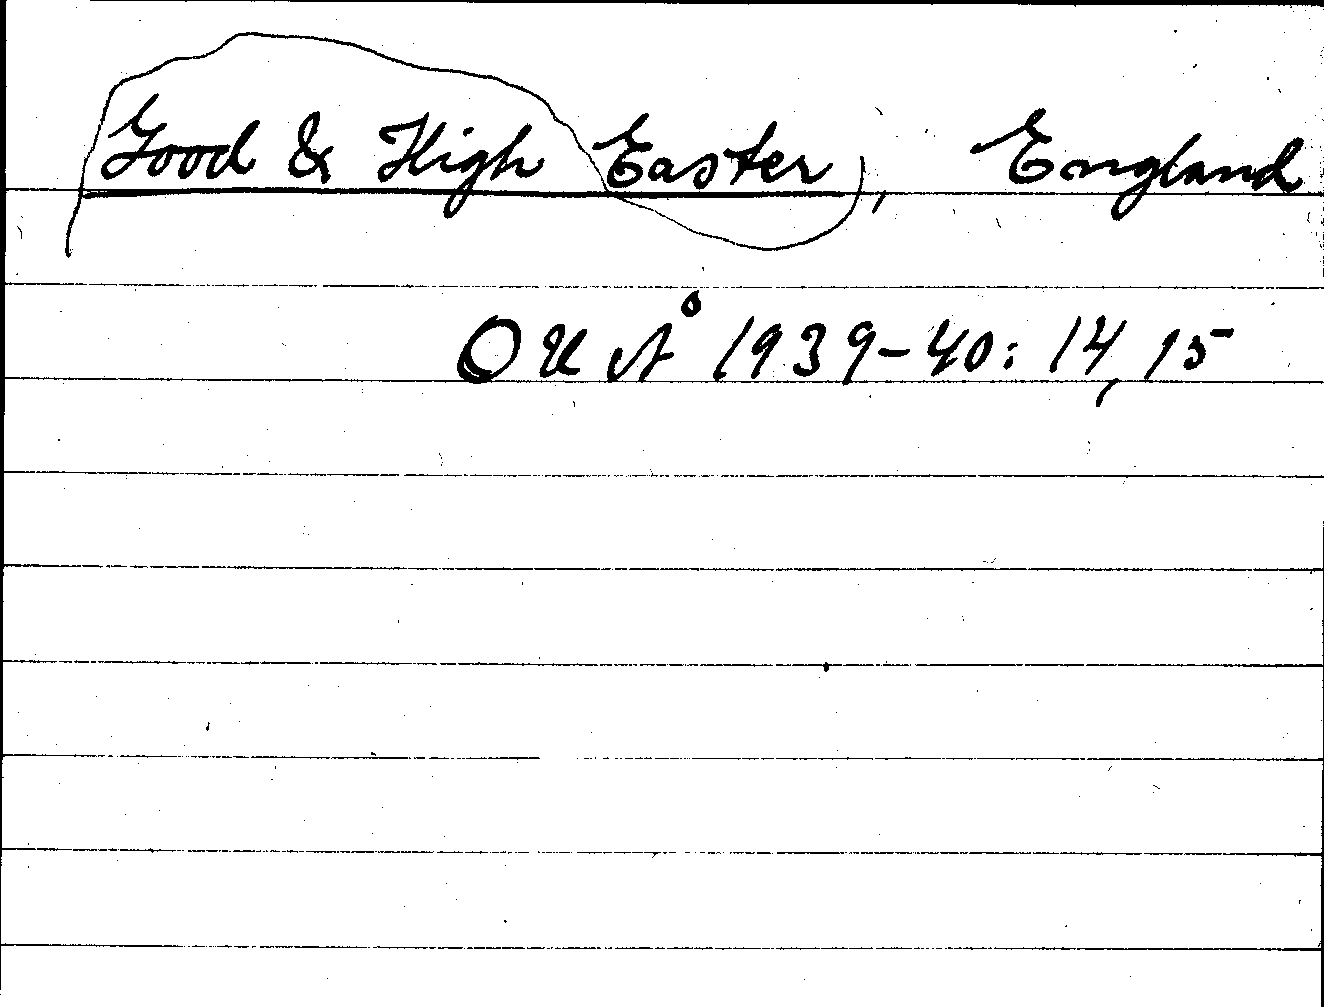 Good & High Easter, England
OUÅ 1939-40: 14, 15